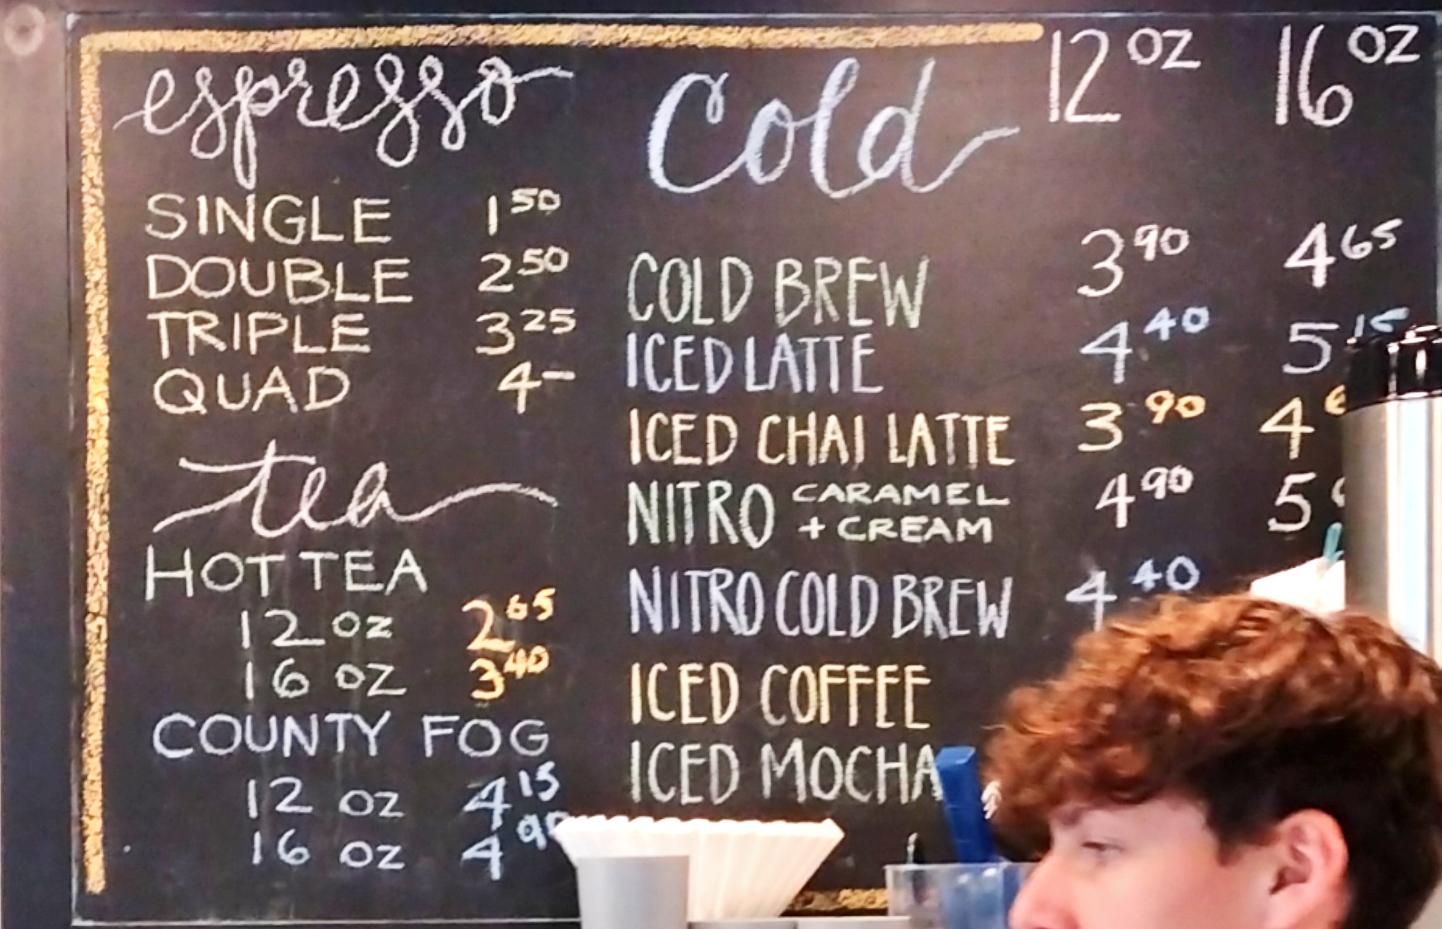 espresso
SINGLE 1 50
DOUBLE 2 50
TRIPLE 3 25
QUAD 4–
tea
HOT TEA
12 OZ 2 65
16 OZ 3 40
COUNTY FOG
12 OZ 4 15
16 OZ 4 90
Cold 12 OZ 16 OZ
COLD BREW 3 90 4 65
ICED LATTE 4 40 5 15
ICED CHAI LATTE 3 90 4
NITRO CARAMEL + CREAM 4 90 5
NITRO COLD BREW 4 40
ICED COFFEE
ICED MOCHA